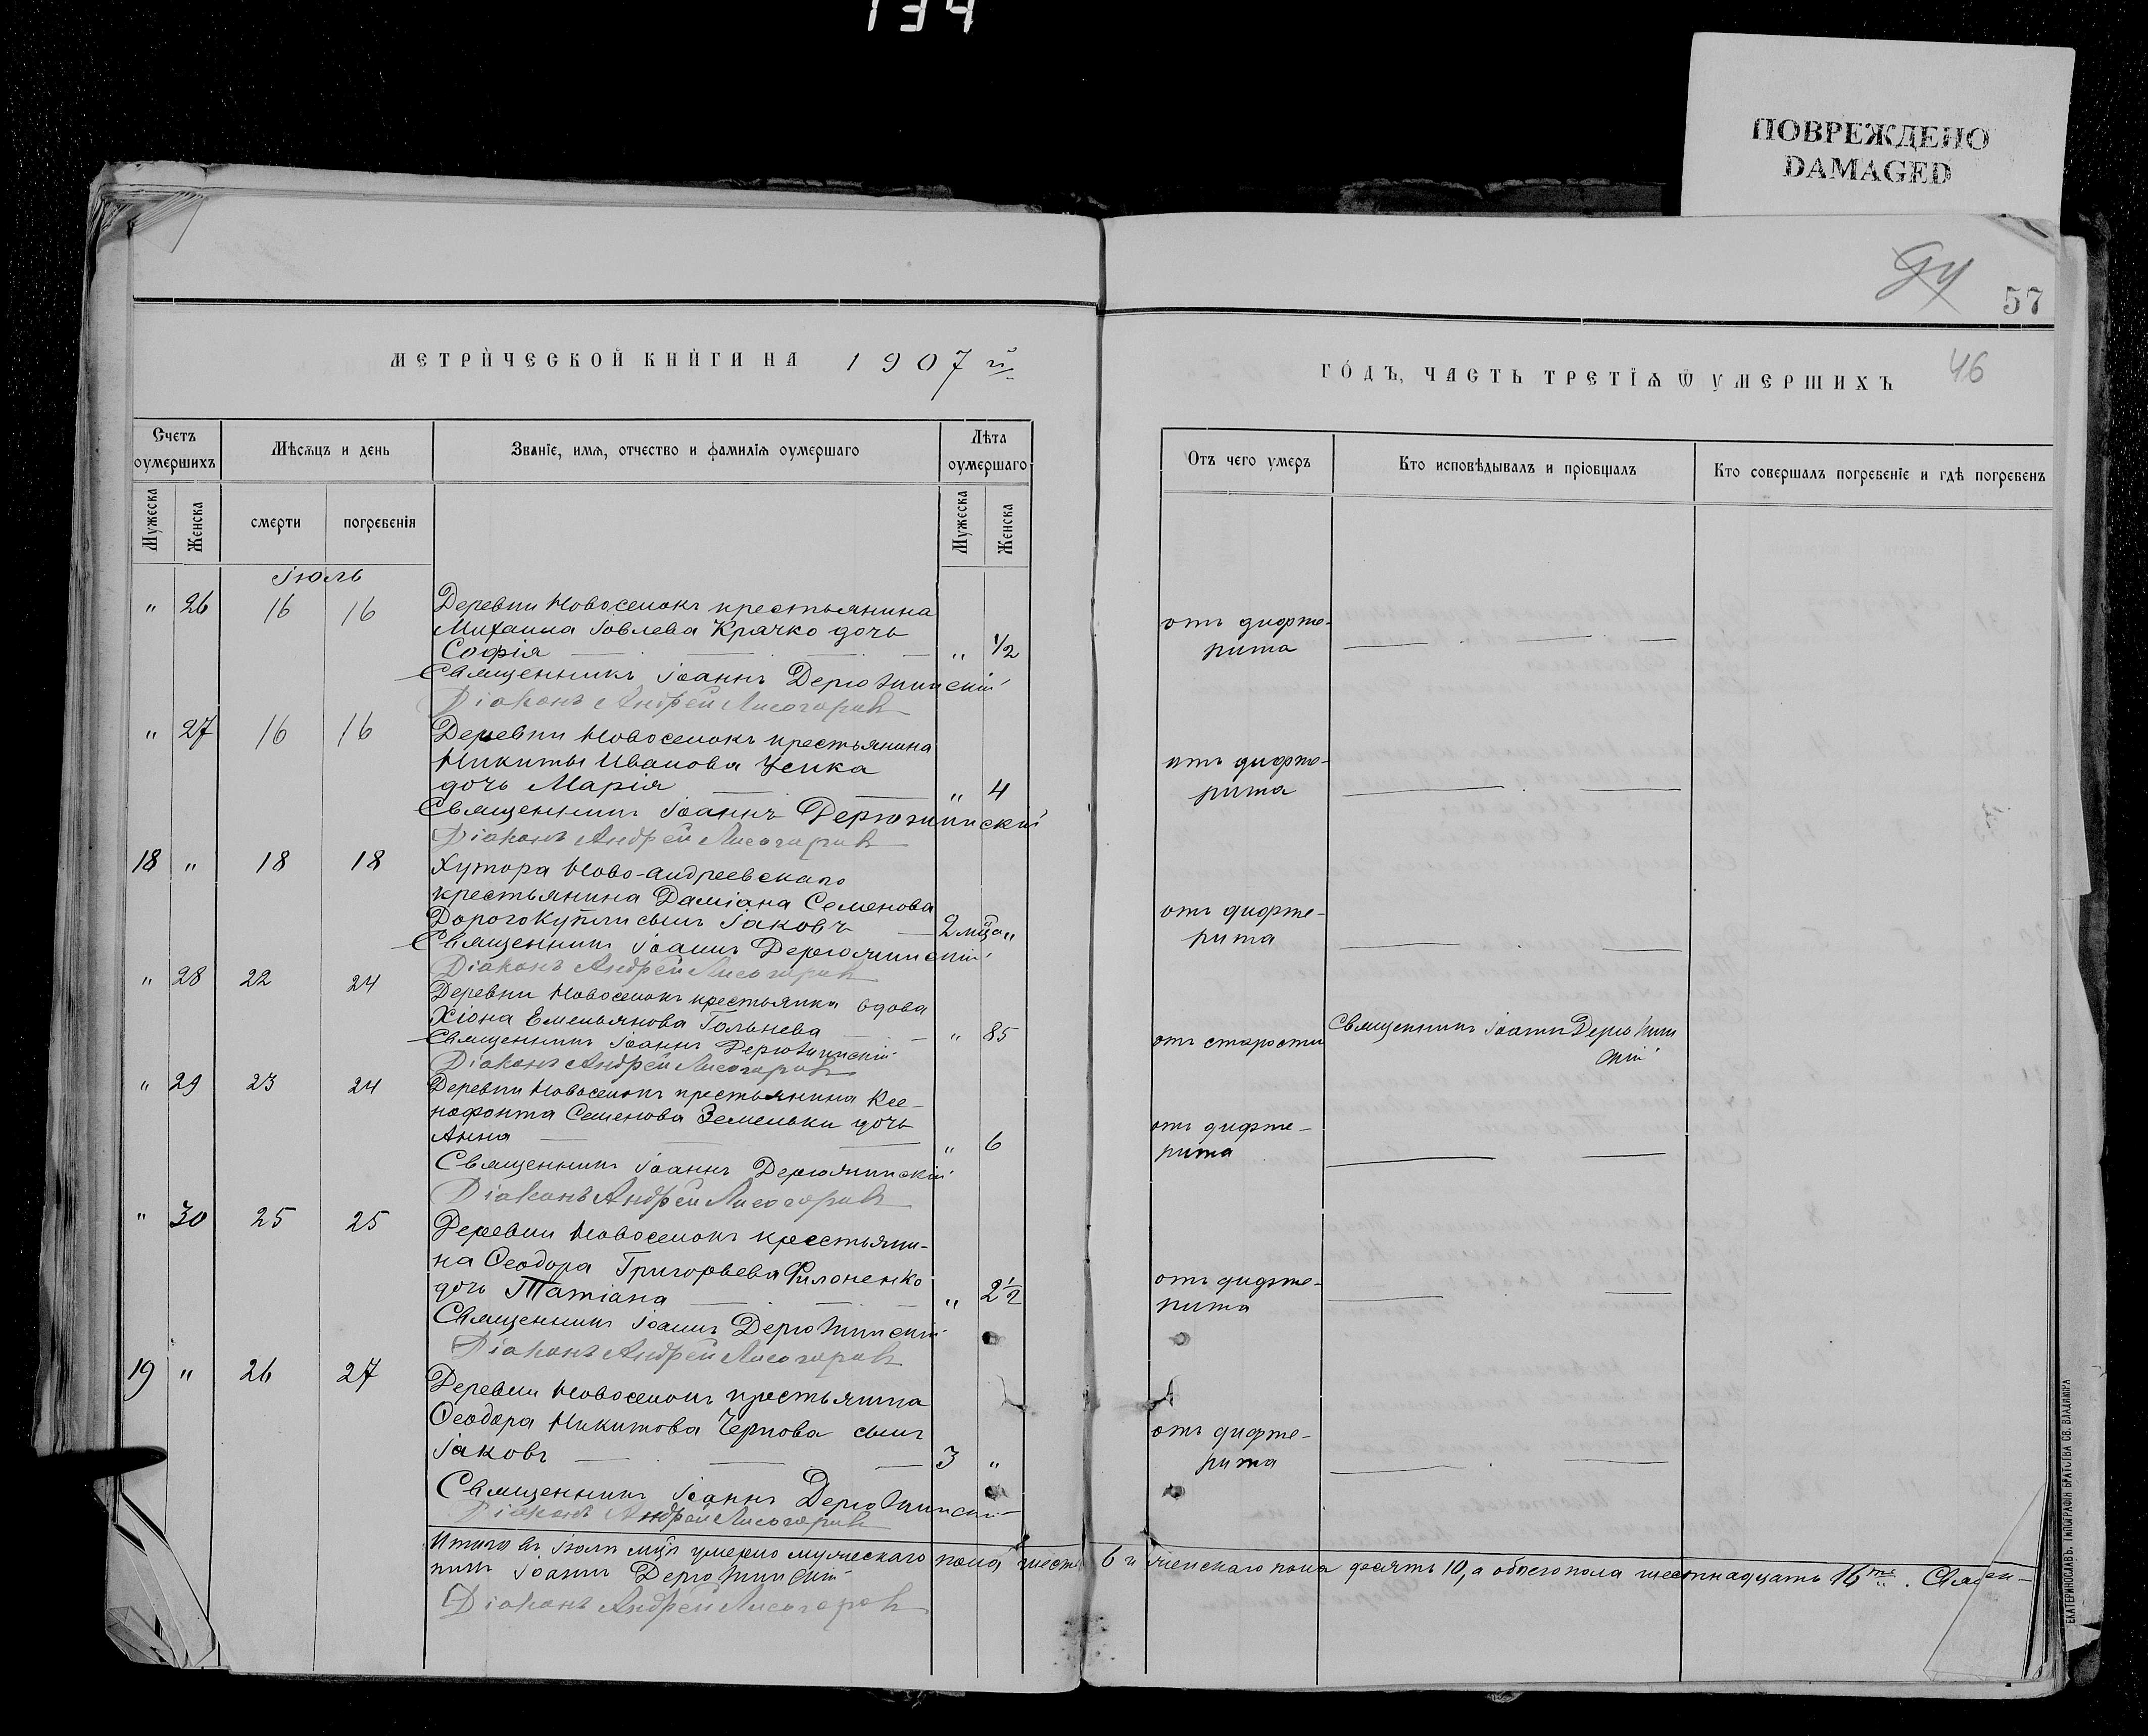 134
ПОВРЕЖДЕНО
DAMAGED
57
46
МЕТРИЧЕСКОЙ КНИГИ НА 1907 й
ГОДЪ, ЧАСТЬ ТРЕТІѦ Ѿ УМЕРШИХЪ
Счетъ оумершихъ
Мѣсѧцъ и день
Званіе, имѧ, отчество и фамиліѧ оумершаго
Лѣта оумершаго
Отъ чего умеръ
Кто исповѣдывалъ и пріобщалъ
Кто совершалъ погребеніе и гдѣ погребенъ
Мужеска
Женска
смерти
погребенія
Мужеска
Женска
Іюль
" 26 16 16 Деревни Новоселокъ крестьянина
Михаила Іовлева Крачко дочь
Софія " 1/2 отъ дифте-
рита
Священникъ Іоаннъ Дерюжинскій
Діаконъ Андрей Лисогоровъ
" 27 16 16 Деревни Новоселокъ крестьянина
Никиты Иванова Усика
дочь Марія " 4 отъ дифте-
рита
Священникъ Іоаннъ Дерюжинскій
Діаконъ Андрей Лисогоровъ
18 " 18 18 Хутора Ново-Андреевскаго
крестьянина Даміана Семенова
Дорогокупли сынъ Іаковъ 2 мца " отъ дифте-
рита
Священникъ Іоаннъ Дерюжинскій
Діаконъ Андрей Лисогоровъ
" 28 22 24 Деревни Новоселокъ крестьянка вдова
Хіона Емельянова Гольнева " 85 отъ старости Священникъ Іоаннъ Дерюжин
скій
Священникъ Іоаннъ Дерюжинскій
Діаконъ Андрей Лисогоровъ
" 29 23 24 Деревни Новоселокъ крестьянина Ксе-
нофонта Семенова Земельки дочь
Анна " 6 отъ дифте-
рита
Священникъ Іоаннъ Дерюжинскій
Діаконъ Андрей Лисогоровъ
" 30 25 25 Деревни Новоселокъ крестьяни-
на Ѳеодора Григорьева Филоненко
дочь Татіана " 2 1/2 отъ дифте-
рита
Священникъ Іоаннъ Дерюжинскій
Діаконъ Андрей Лисогоровъ
19 " 26 27 Деревни Новоселокъ крестьянина
Ѳеодора Никитова Чернова сынъ
Іаковъ 3 " отъ дифте-
рита
Священникъ Іоаннъ Дерюжинскій
Діаконъ Андрей Лисогоровъ
Итого въ Іюлѣ мцѣ умерло мужескаго пола шесть 6 и женскаго пола десять 10, а обоего пола шестнадцать 16ть. Священ-
никъ Іоаннъ Дерюжинскій
Діаконъ Андрей Лисогоровъ
ЕКАТЕРИНОСЛАВЪ. ТИПОГРАФІЯ БРАТСТВА СВ. ВЛАДИМІРА